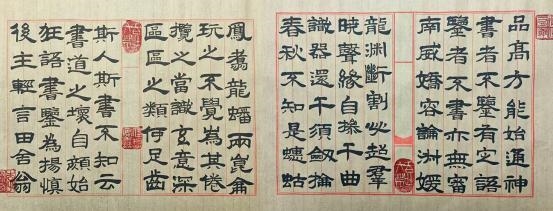 品高方能始通神
書者不鑒有定語
鑒者不書亦無審
南威嬌容論淑媛
龍淵斷割必超群
曉聲緣自操千曲
識器還千須劍掄
春秋不知是蟪蛄
鳳翥龍蟠兩崑侖
玩之不覺為其倦
攬之當識玄意深
區區之類何足齒
斯人斯書不知云
書道之壞自顔始
狂語書鑒為揚慎
後主輕言田舍翁